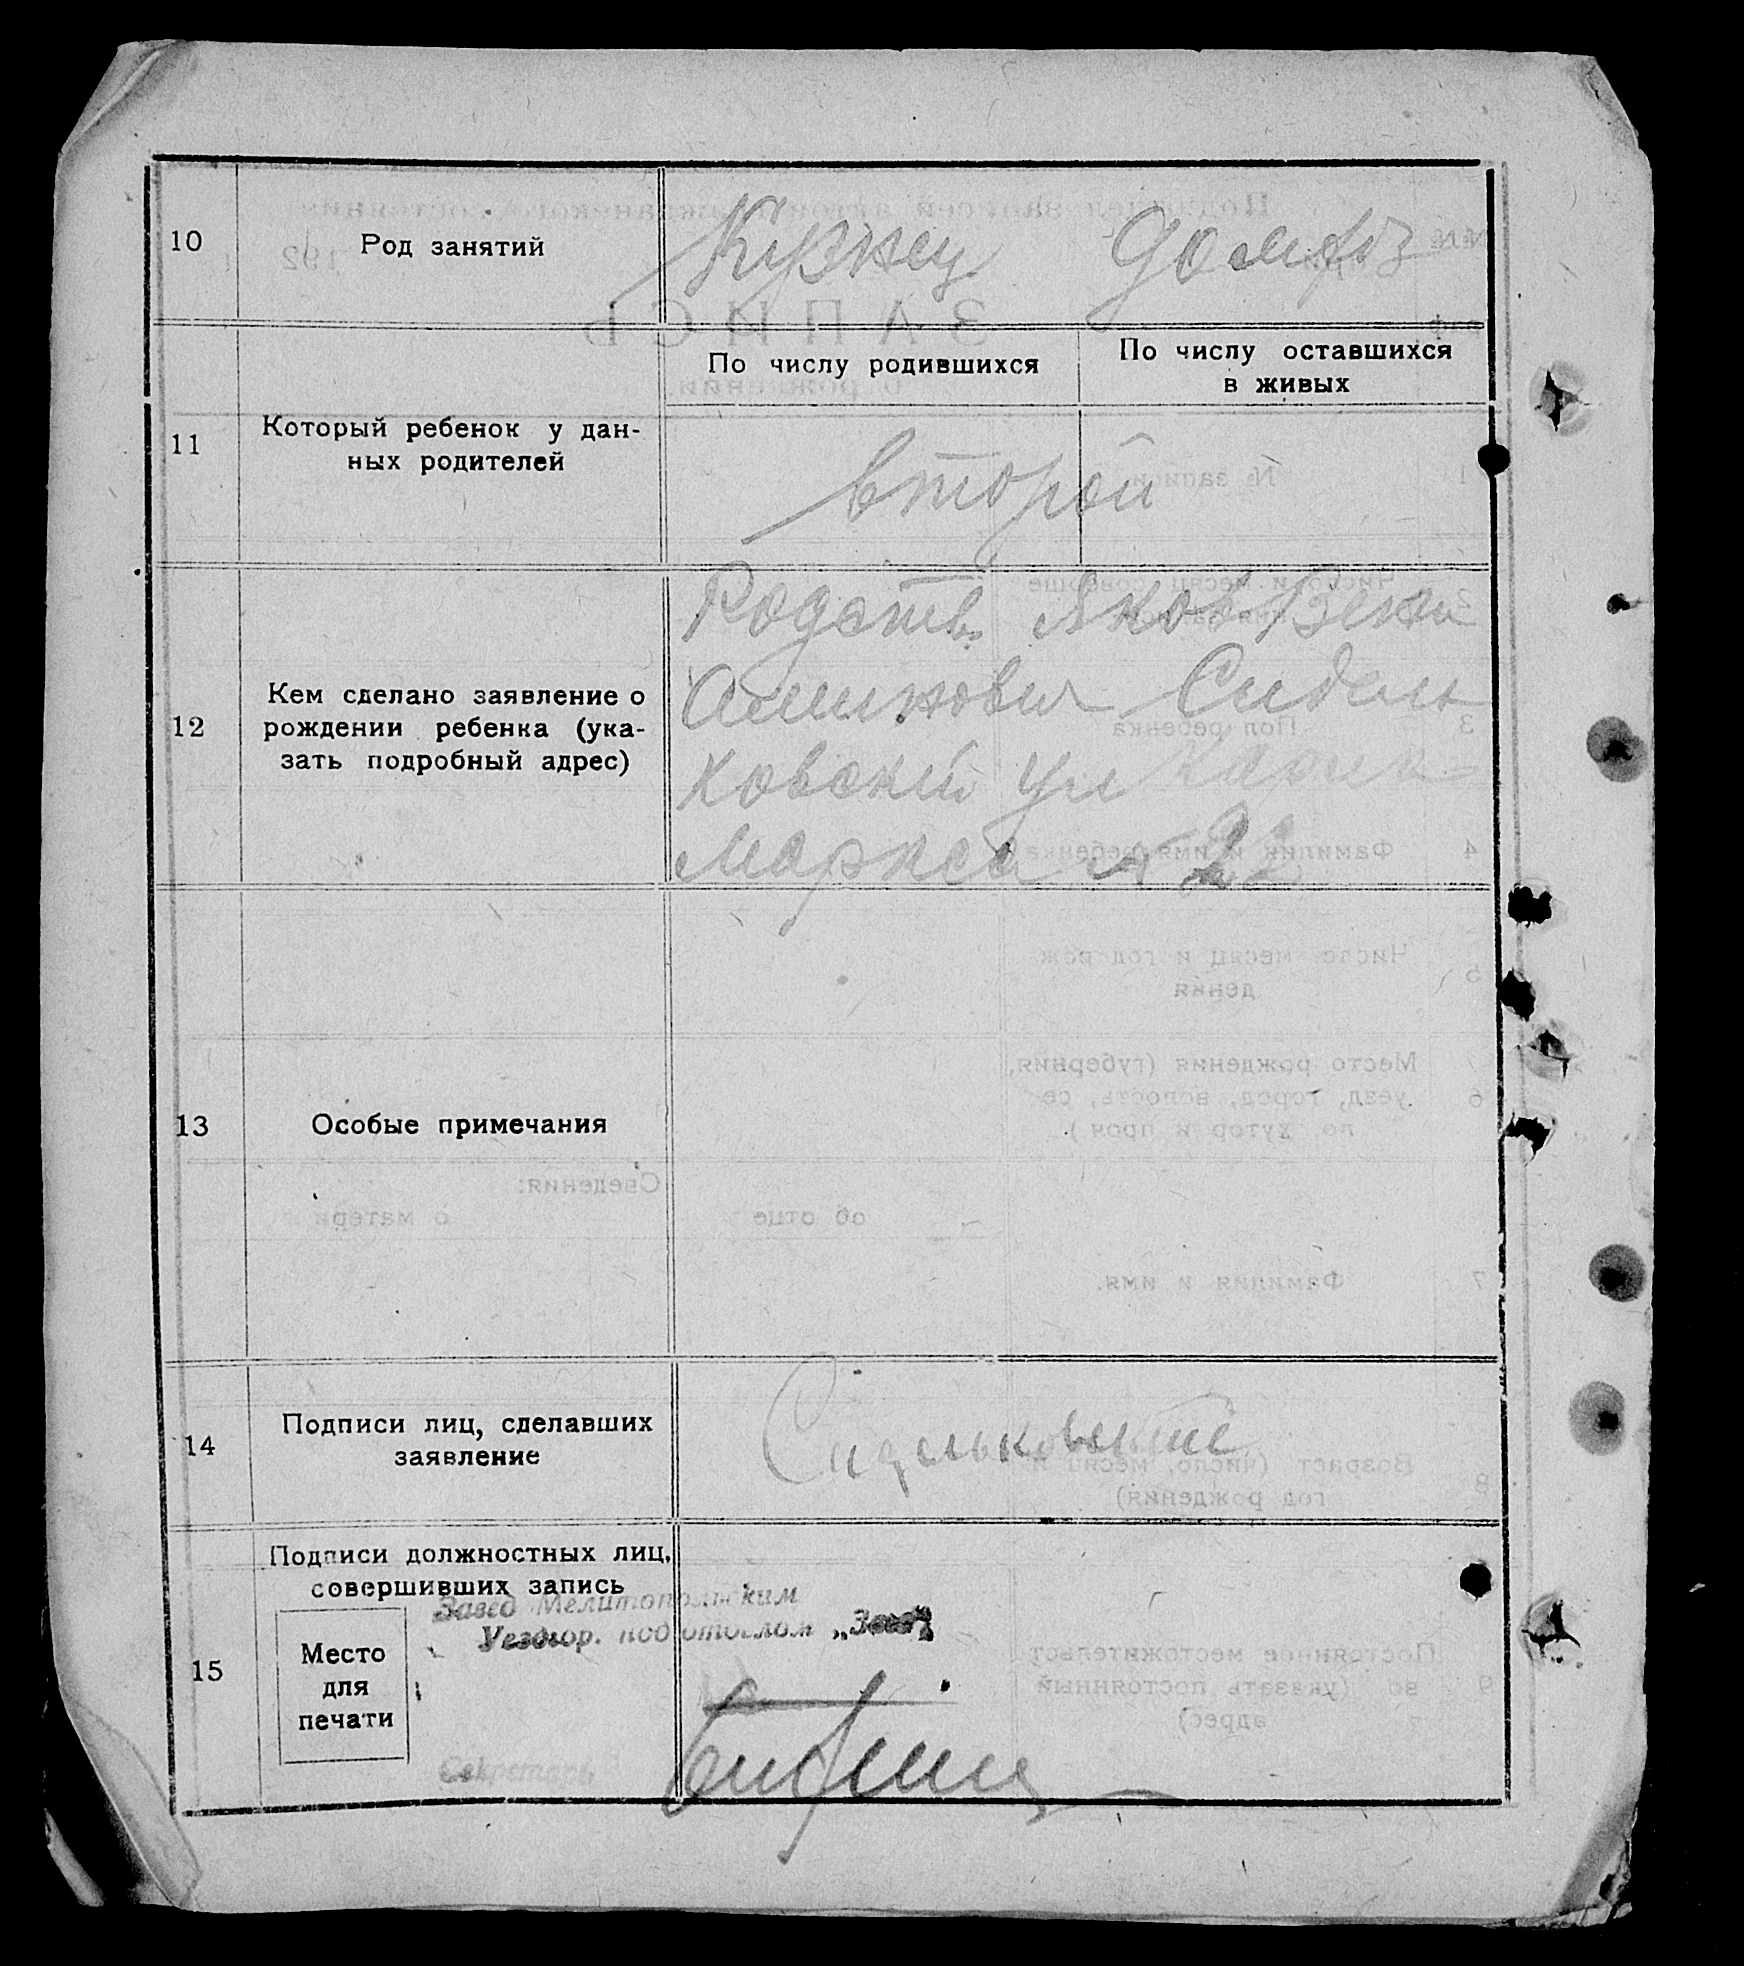 10 Род занятий Кузнец домхоз
По числу родившихся По числу оставшихся
в живых
11 Который ребенок у дан-
ных родителей
второй
12 Кем сделано заявление о
рождении ребенка (ука-
зать подробный адрес)
Родств. Яков Вени
аминович Сидель
ковский ул Карла
Маркса № 22
13 Особые примечания
14 Подписи лиц, сделавших
заявление
15 Подписи должностных лиц,
совершивших запись
Завед Мелитопольским
подотделом „Загс"
Место
для
печати
Секретарь